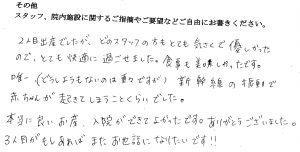 その他
スタッフ、院内施設に関するご指摘やご要望などご自由にお書きください。
2人目出産でしたが、どのスタッフの方もとても気さくで優しかった
ので、とても快適に過ごせました。食事も美味しかったです。
唯一、(どうしようもないのは重々ですが) 新幹線の振動で
赤ちゃんが起きてしまうことくらいでした。
本当に良いお産、入院ができてよかったです。ありがとうございました。
3人目がもしあれば またお世話になりたいです!!